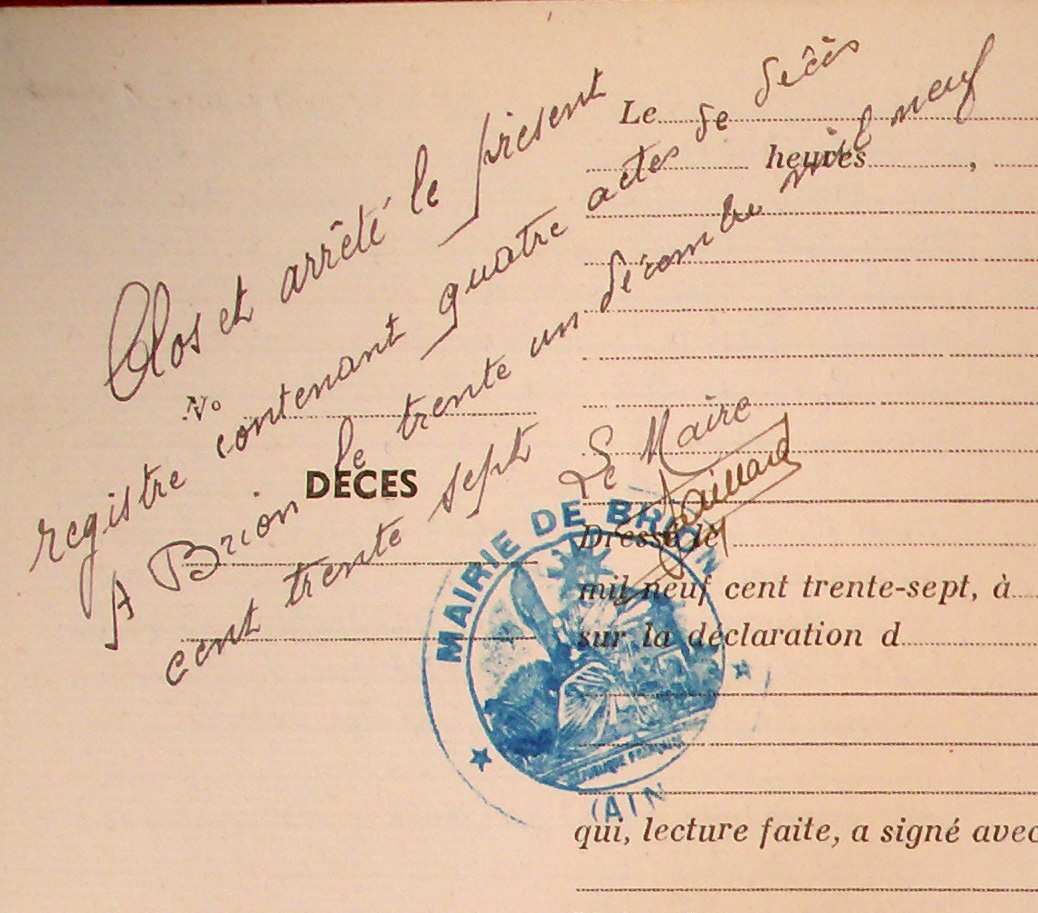 Clos et arrêté le présent
registre contenant quatre actes de décès
A Brion le trente un décembre mil neuf
cent trente sept
Le Maire
Le
heures,
No
DÉCES
Dressé le
mil neuf cent trente-sept, à
sur la déclaration d
qui, lecture faite, a signé avec
MAIRIE DE BRION
RÉPUBLIQUE FRANÇAISE
(AIN